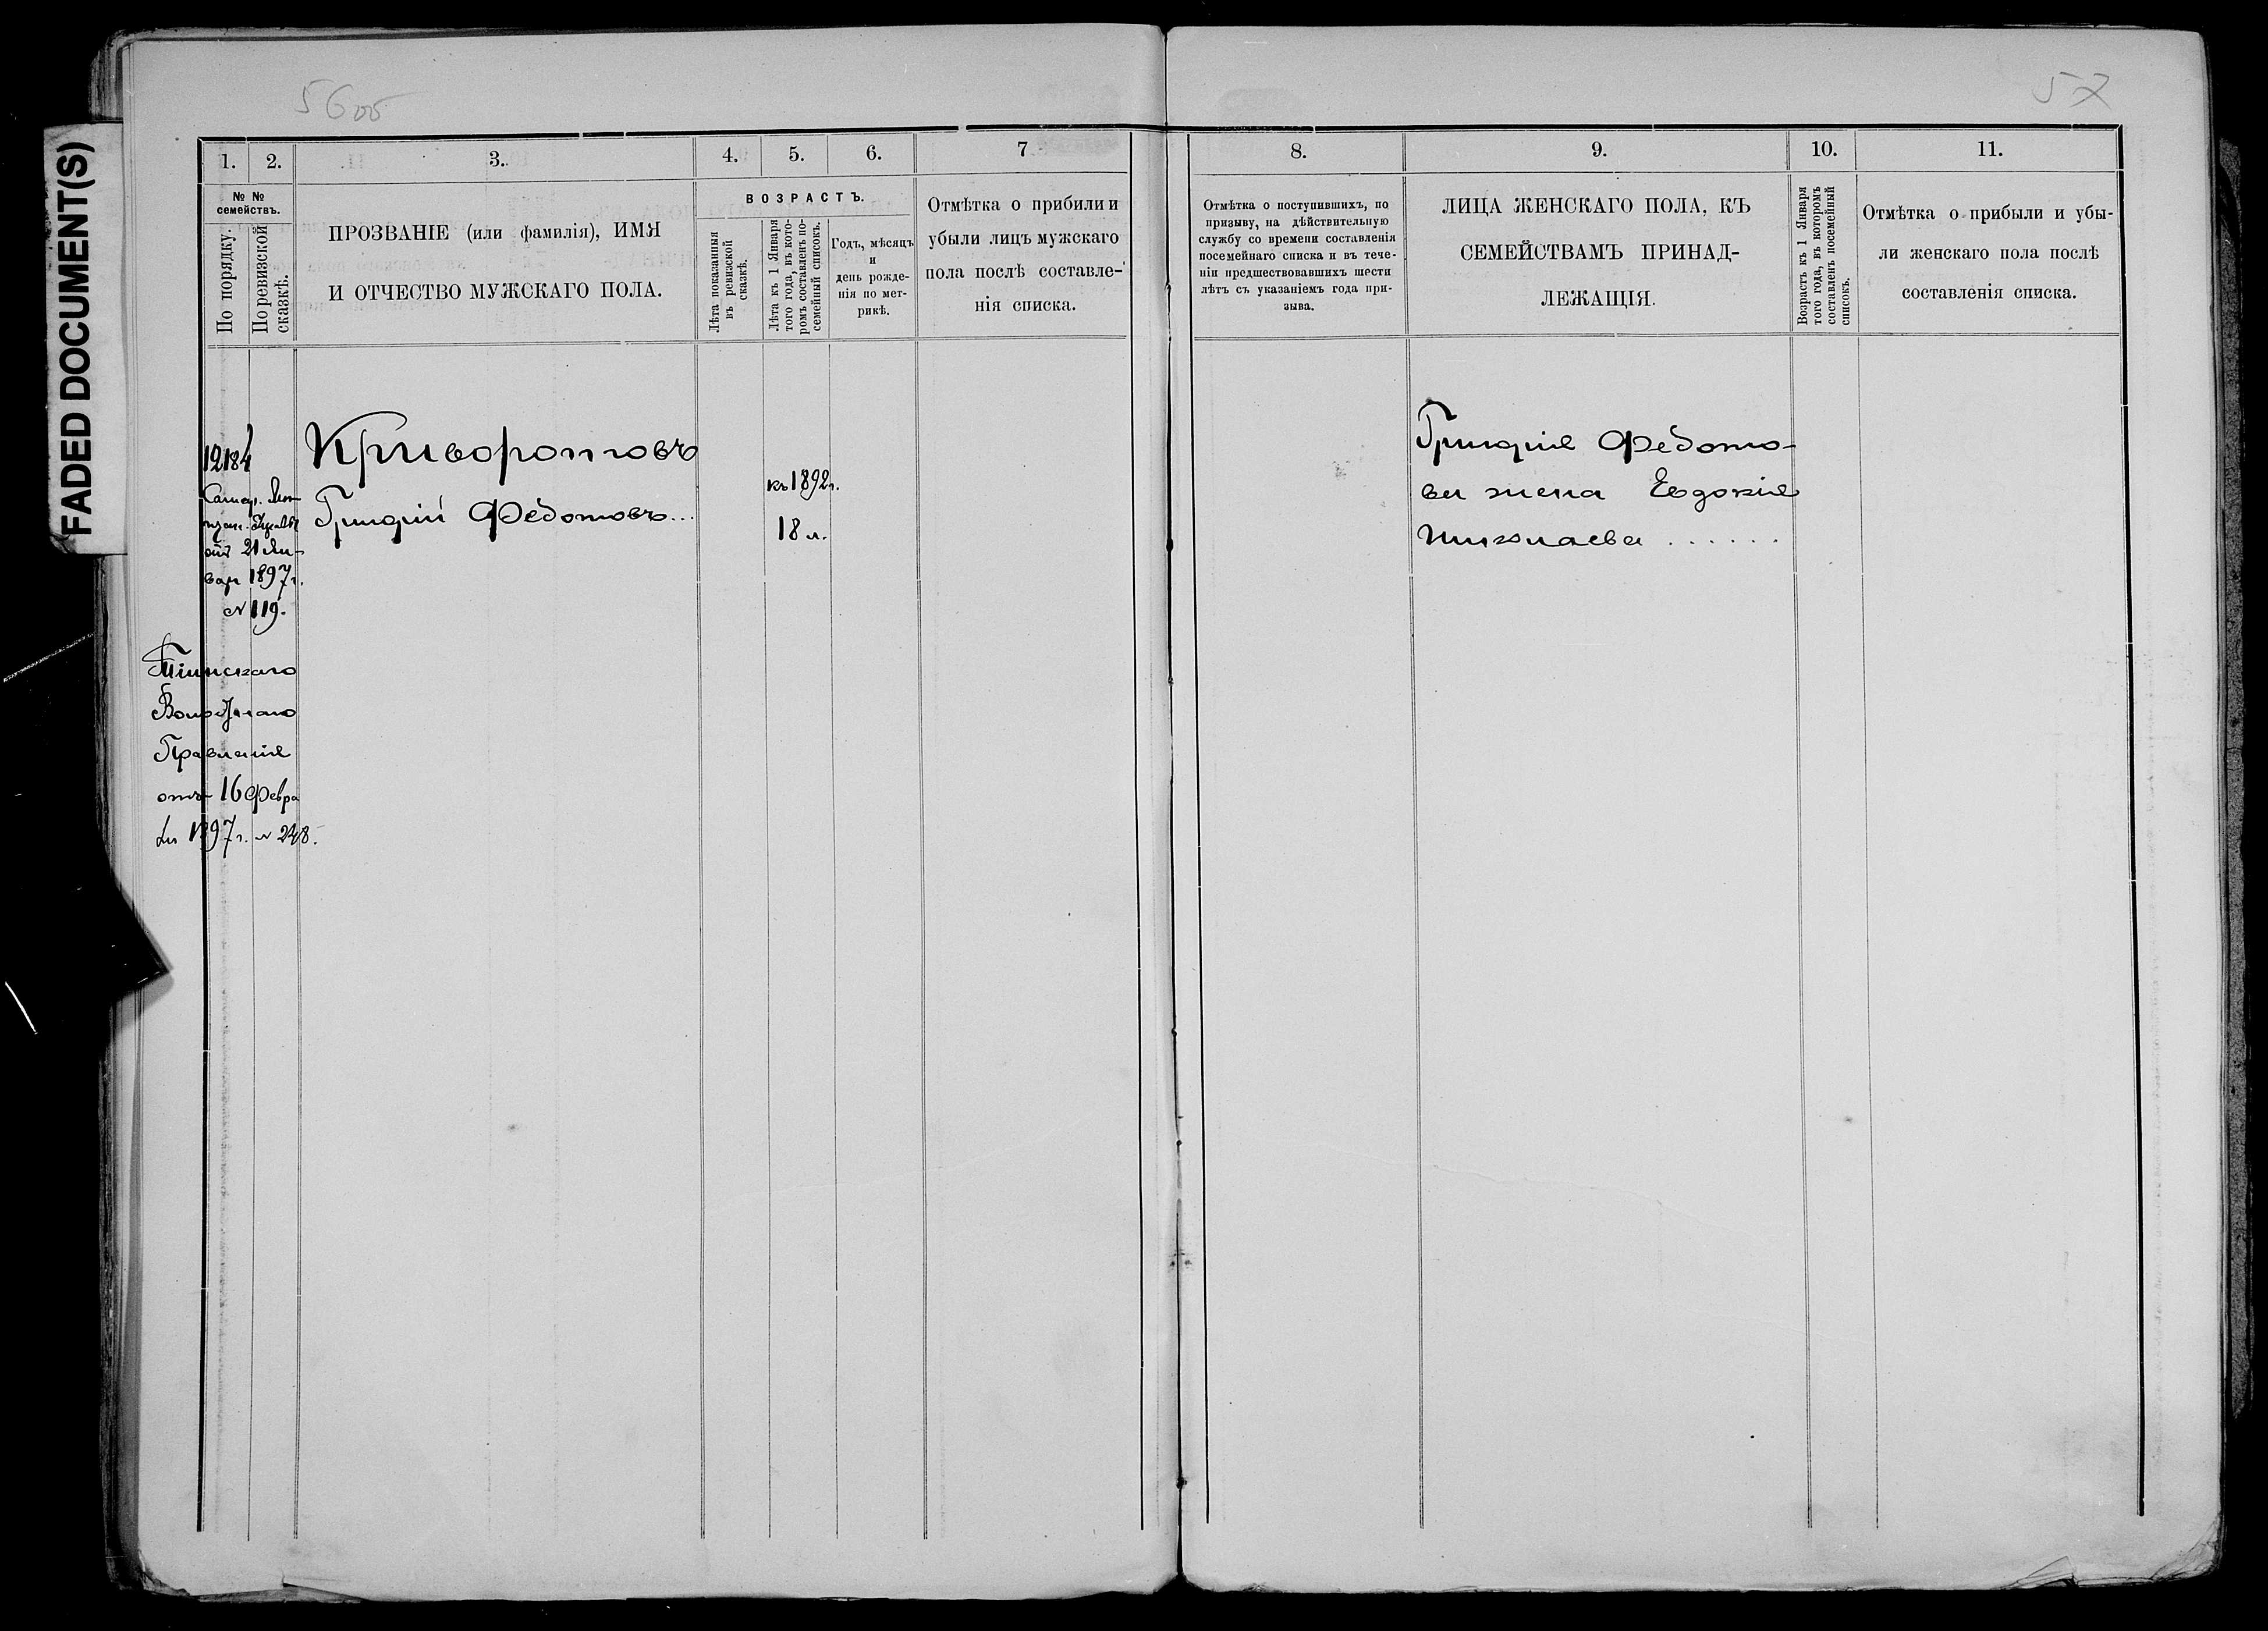 FADED DOCUMENT(S)
56об
57
1. 2. 3. 4. 5. 6. 7
№ №
семействъ.
По порядку.
По ревизской
сказкѣ.
ПРОЗВАНІЕ (или фамилія), ИМЯ
И ОТЧЕСТВО МУЖСКАГО ПОЛА.
ВОЗРАСТЪ.
Лѣта показанныя
въ ревизской
сказкѣ.
Лѣта къ 1 Января
того года, въ кото-
ромъ составленъ по-
семейный списокъ.
Годъ, мѣсяцъ
и
день рожде-
нія по мет-
рикѣ.
Отмѣтка о прибыли и
убыли лицъ мужскаго
пола послѣ составле-
нія списка.
12184
от 21 Ян-
варя 1897 г.
№ 119.
Волостнаго
Правленія
отъ 16 Февра
ля 1897 г. № 248.
Криворотовъ
Григорій Федотовъ...
къ 1892 г.
18 л.
8. 9. 10. 11.
Отмѣтка о поступившихъ, по
призыву, на дѣйствительную
службу со времени составленія
посемейнаго списка и въ тече-
ніи предшествовавшихъ шести
лѣтъ съ указаніемъ года при-
зыва.
ЛИЦА ЖЕНСКАГО ПОЛА, КЪ
СЕМЕЙСТВАМЪ ПРИНАД-
ЛЕЖАЩІЯ.
Возрастъ къ 1 Января
того года, въ которомъ
составленъ посемейный
списокъ.
Отмѣтка о прибыли и убы-
ли женскаго пола послѣ
составленія списка.
Григорія Федото-
ва жена Евдокія
Николаева . . . . . .